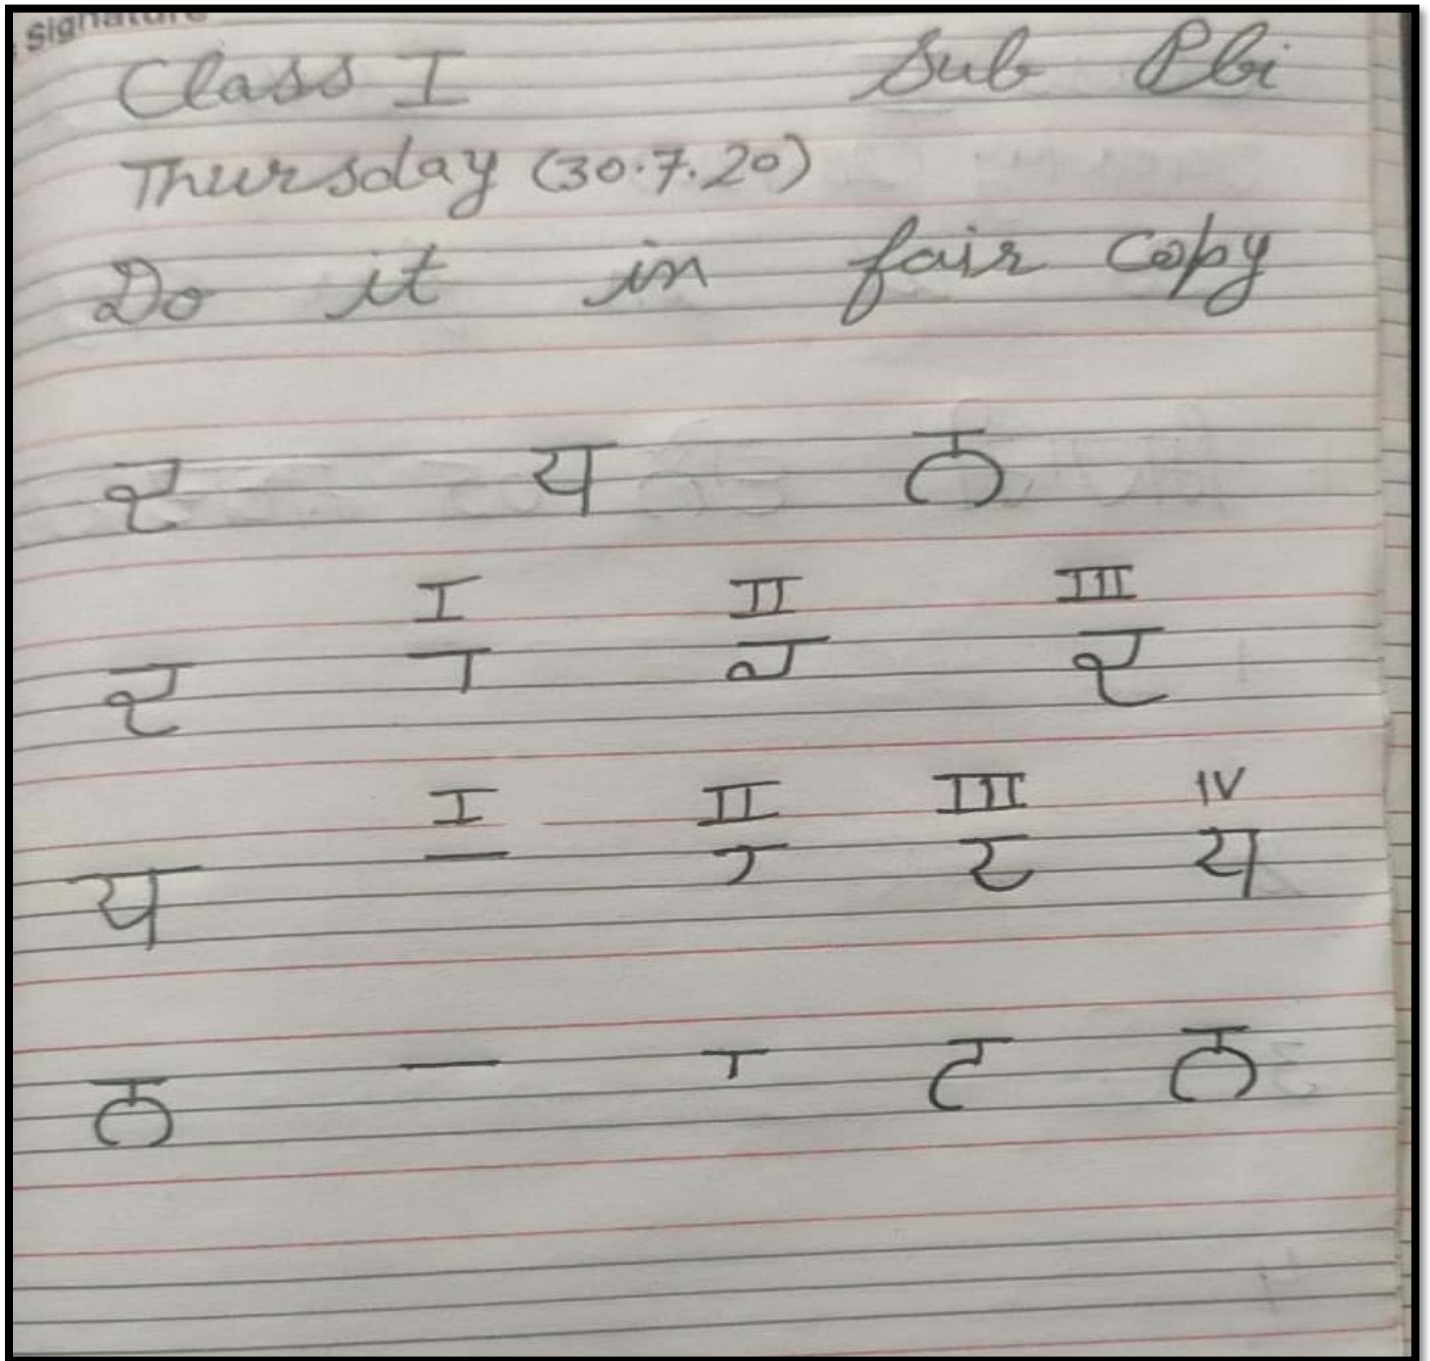 Signature
Class I Sub Pbi
Thursday (30.7.20)
Do it in fair copy
ਦ ਧ ਨ
I II III
ਦ ਦ
I II III IV
ਧ ਧ
ਨ ਨ